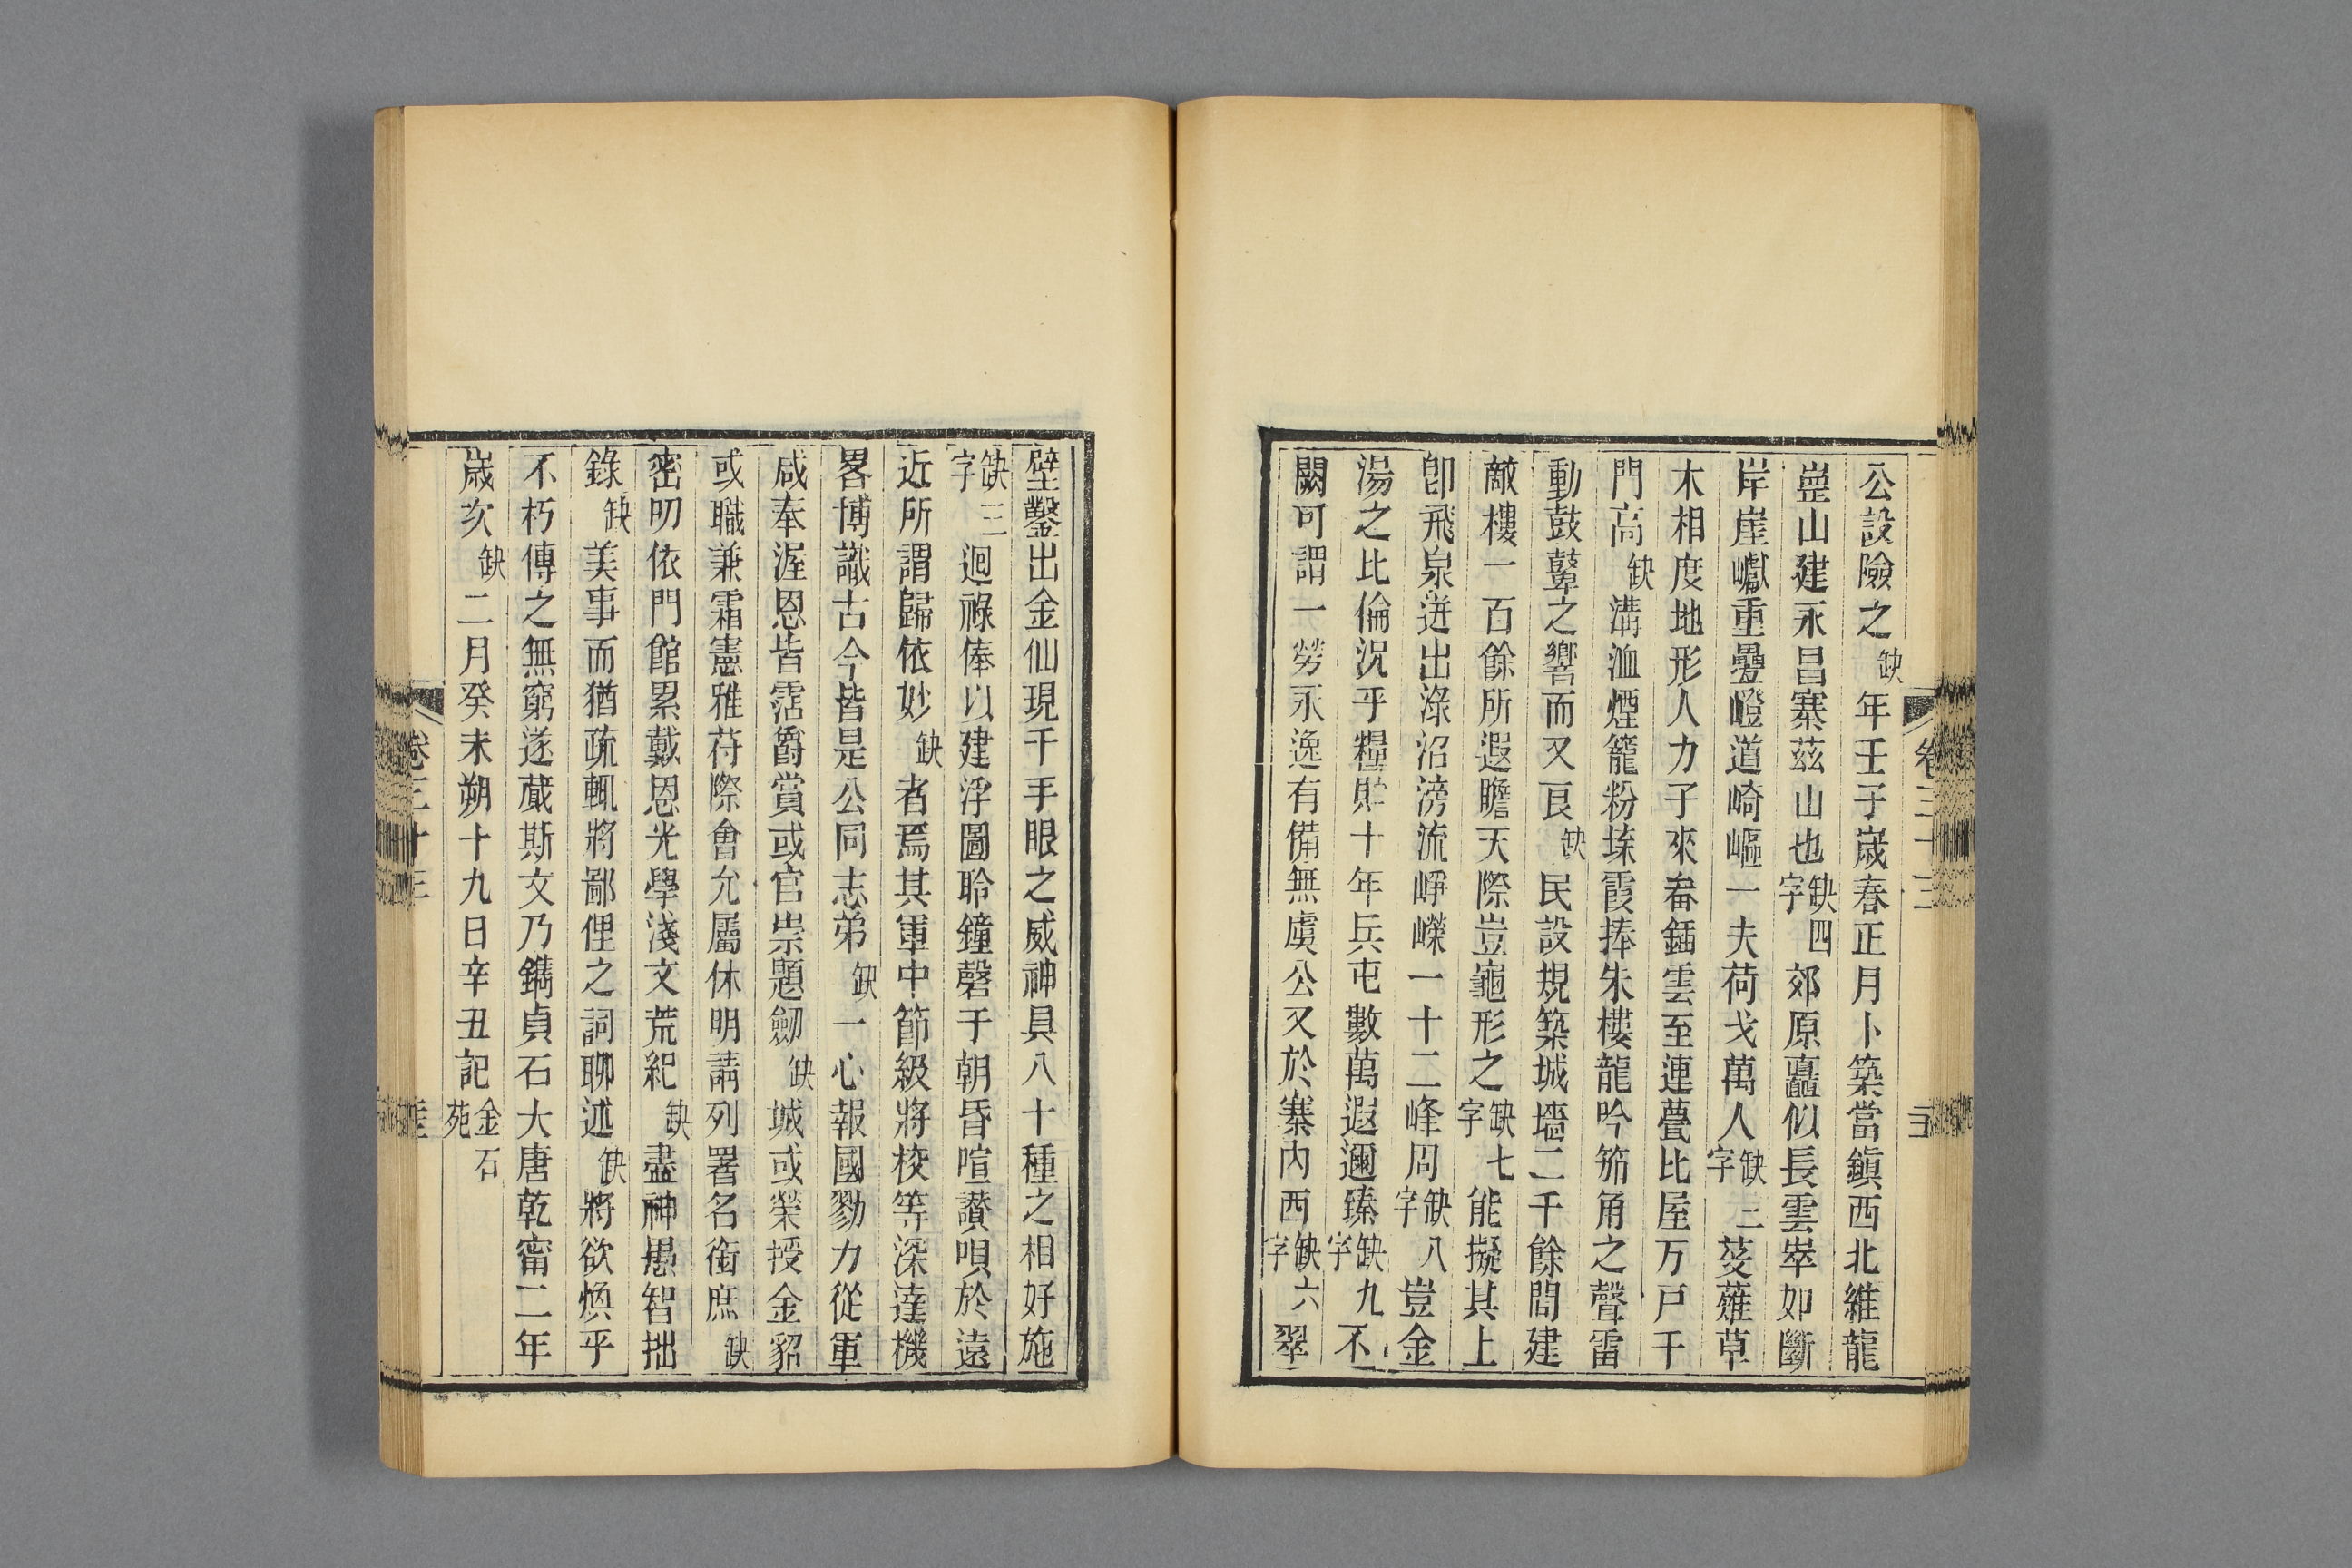 公設險之缺年壬子歲春正月卜築當鎮西北維龍
崗山建永昌寨茲山也缺四字郊原矗似長雲崒如斷
岸崖巘重疊磴道崎嶇一夫荷戈萬人缺二字芟薙草
木相度地形人力子來畚鍤雲至連甍比屋万戸千
門高缺溝洫煙籠粉堞霞捧朱樓龍吟笳角之聲雷
動鼓鼙之響而又良缺民設規築城墻二千餘間建
敵樓一百餘所遐瞻天際豈龜形之缺七字能擬其上
卽飛泉迸出淥沼滂流崢嶸一十二峰周缺八字豈金
湯之比倫況乎糧貯十年兵屯數萬遐邇臻缺九字不
闕可謂一勞永逸有備無虞公又於寨內西缺六字翠
壁鑿出金仙現千手眼之威神具八十種之相好施
缺三字迴祿俸以建浮圖聆鐘磬于朝昏喧讃唄於遠
近所謂歸依妙缺者焉其軍中節級將校等深達機
畧博識古今皆是公同志弟缺一心報國勠力從軍
咸奉渥恩皆霑爵賞或官崇題劒缺城或榮授金貂
或職兼霜憲雅苻際會允屬休明請列署名銜庶缺
密叨依門館累戴恩光學淺文荒紀缺盡神愚智拙
錄缺美事而猶疏輒將鄙俚之詞聊述缺將欲煥乎
不朽傳之無窮遂蕆斯文乃鐫貞石大唐乾甯二年
歲次缺二月癸未朔十九日辛丑記金石苑
卷三十三